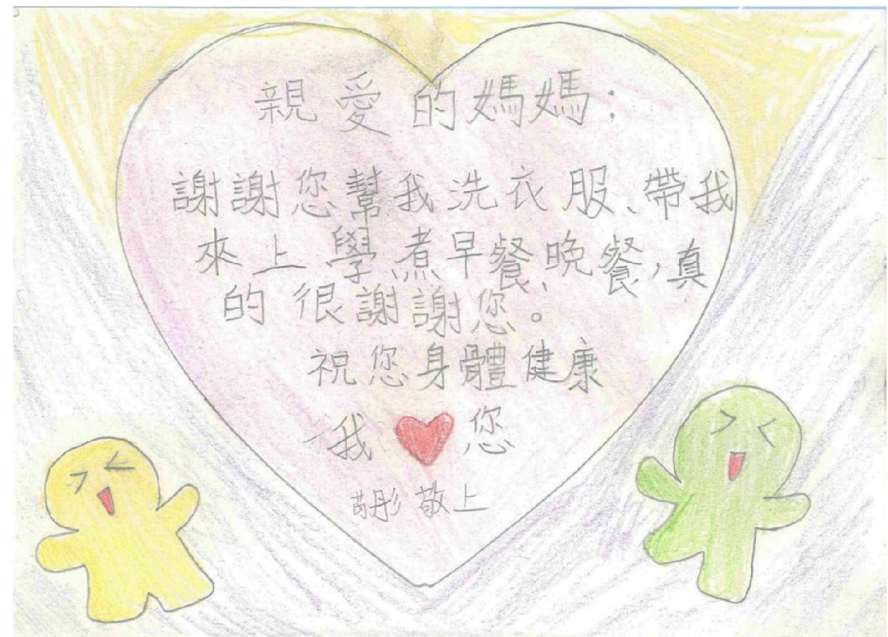 親愛的媽媽：
謝謝您幫我洗衣服、帶我
來上學、煮早餐、晚餐，真
的很謝謝您。
祝您身體健康
我❤您
彤敬上